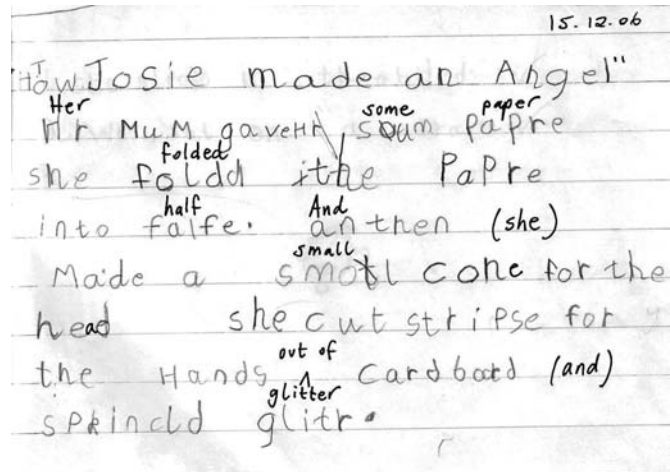 15.12.06
"How Josie made an Angel"
Her some paper
Hr MuM gave Hr soum papre
folded
she foldd the PaPre
half And
into falfe. an then (she)
small
Made a smotl cone for the
head she cut stripse for
out of
the Hands ^ Cardboard (and)
glitter
sprincld glitr.